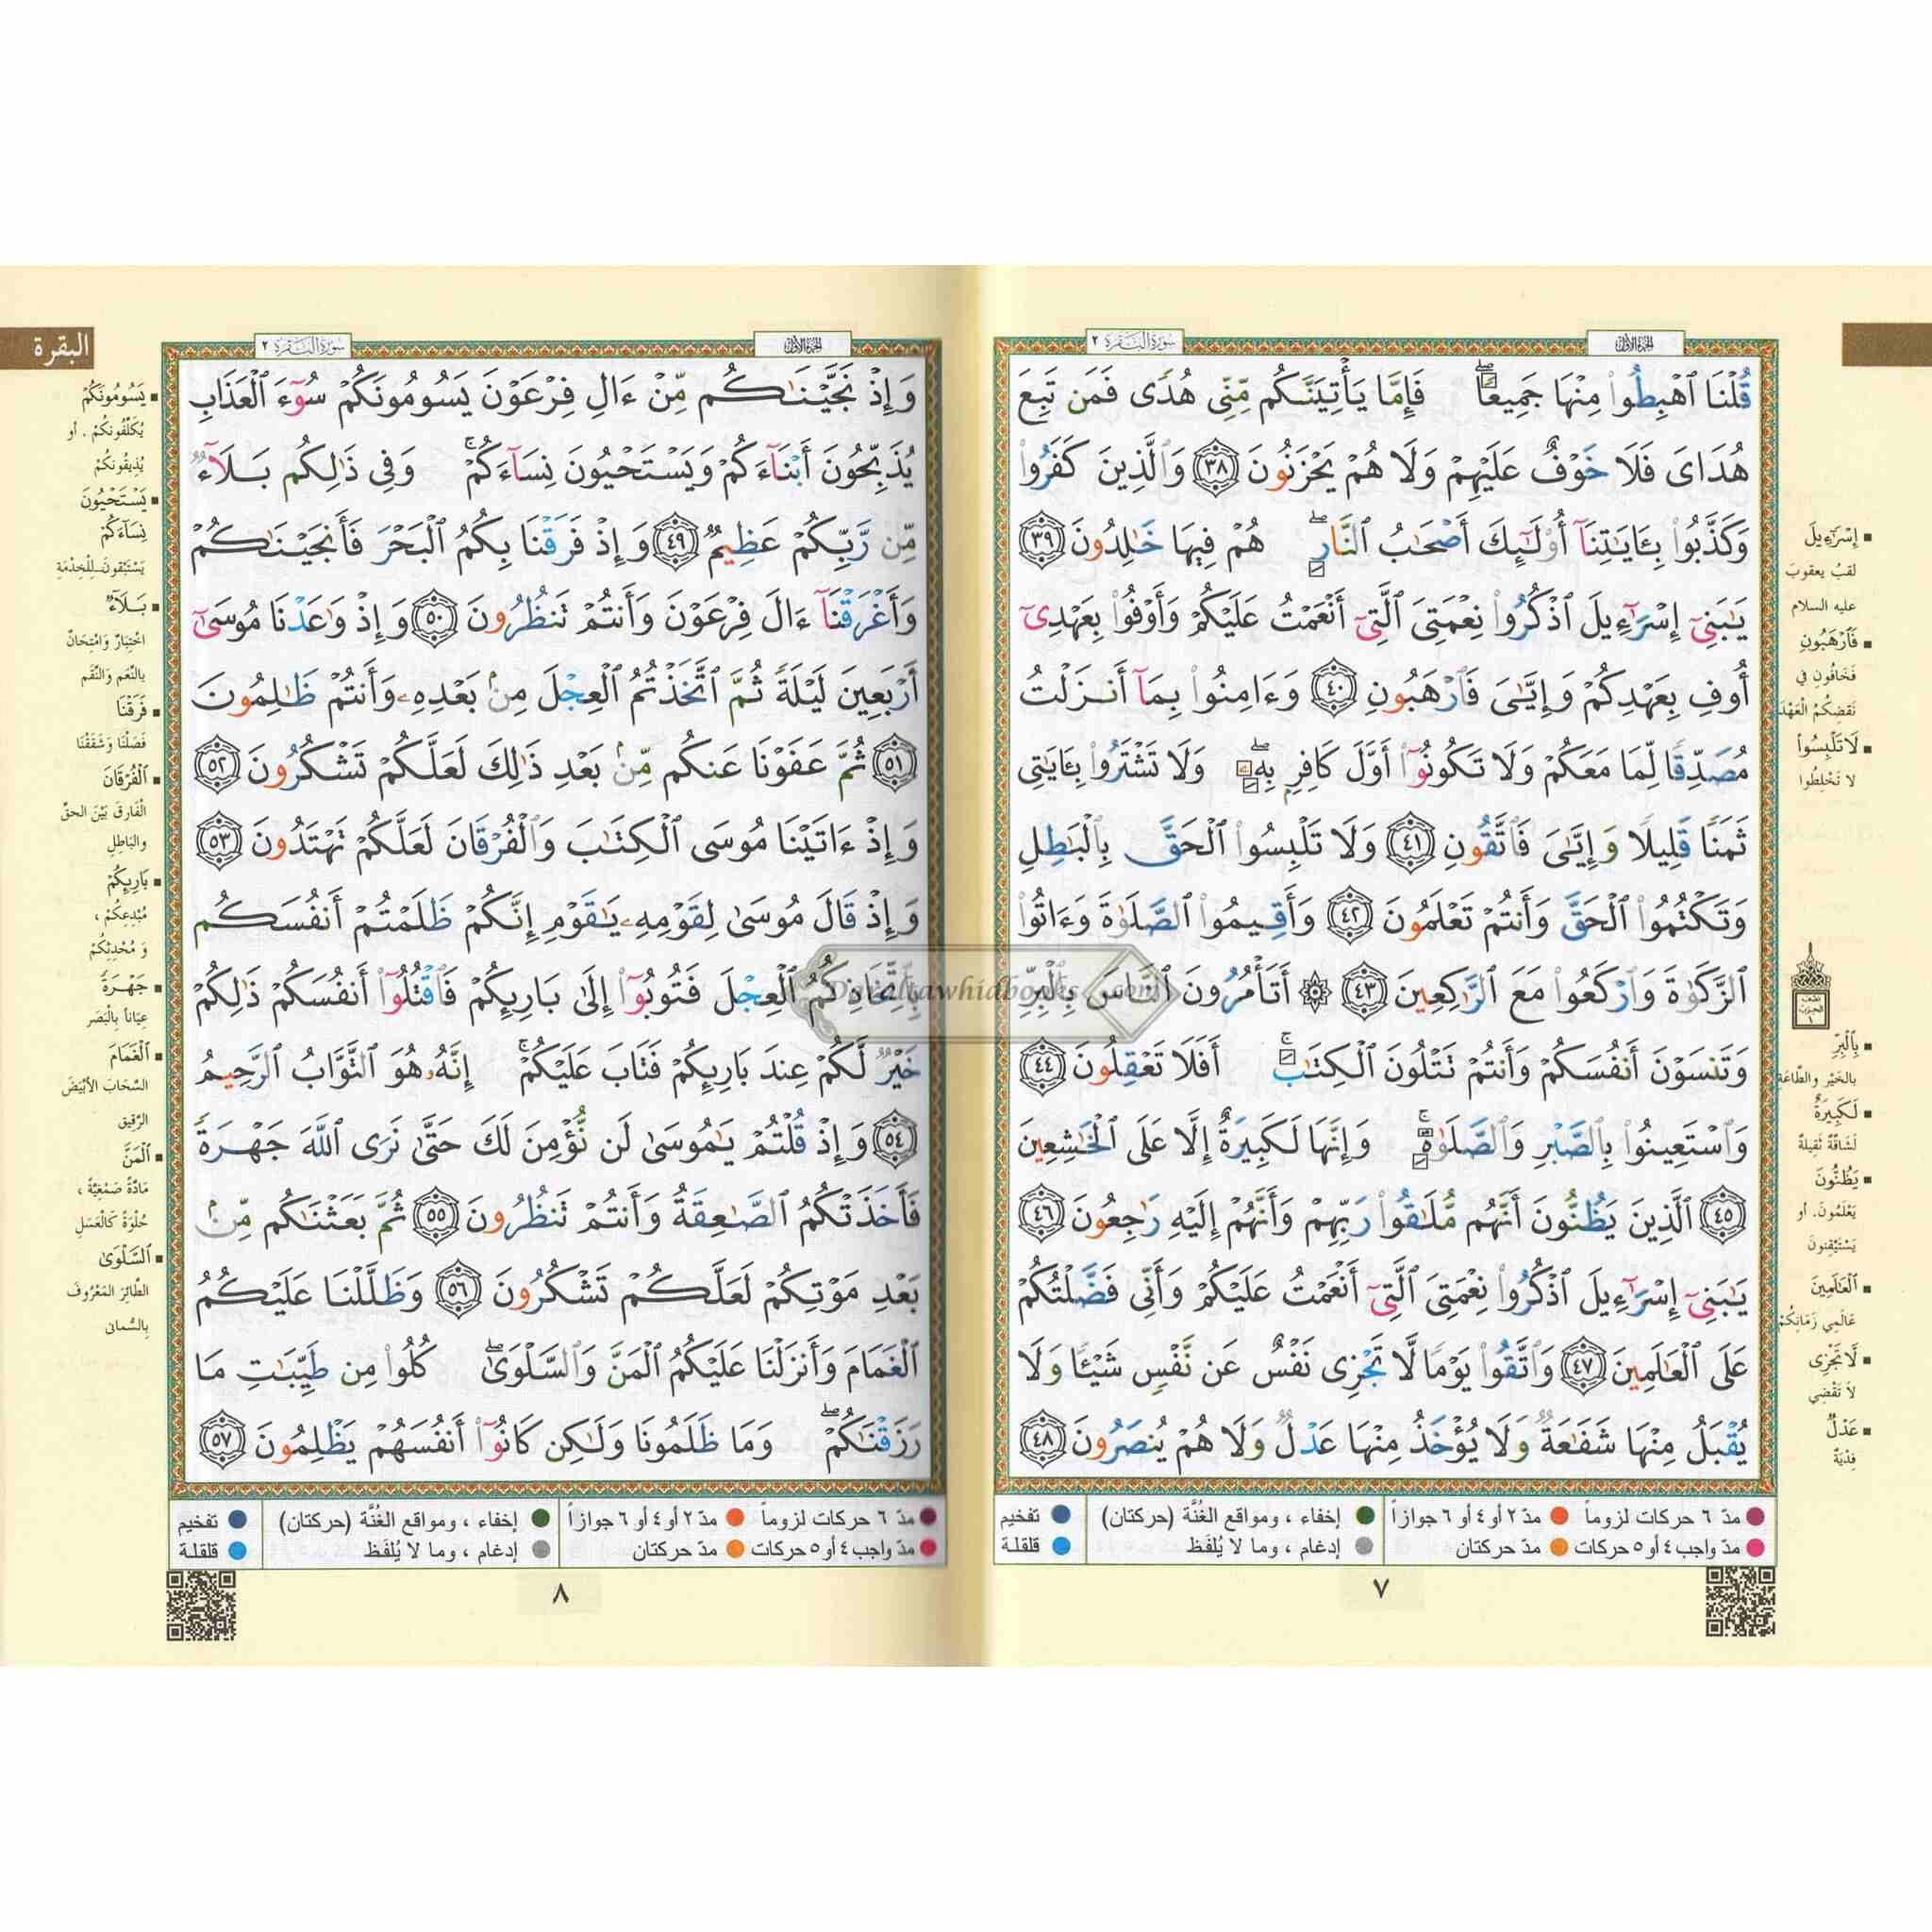 الجزء الأول
سورة البقرة ٢
قُلْنَا ٱهْبِطُوا۟ مِنْهَا جَمِيعًا ۖ فَإِمَّا يَأْتِيَنَّكُم مِّنِّى هُدًى فَمَن تَبِعَ
هُدَاىَ فَلَا خَوْفٌ عَلَيْهِمْ وَلَا هُمْ يَحْزَنُونَ ٣٨ وَٱلَّذِينَ كَفَرُوا۟
وَكَذَّبُوا۟ بِـَٔايَـٰتِنَآ أُو۟لَـٰٓئِكَ أَصْحَـٰبُ ٱلنَّارِ ۖ هُمْ فِيهَا خَـٰلِدُونَ ٣٩
يَـٰبَنِىٓ إِسْرَٰٓءِيلَ ٱذْكُرُوا۟ نِعْمَتِىَ ٱلَّتِىٓ أَنْعَمْتُ عَلَيْكُمْ وَأَوْفُوا۟ بِعَهْدِىٓ
أُوفِ بِعَهْدِكُمْ وَإِيَّـٰىَ فَٱرْهَبُونِ ٤٠ وَءَامِنُوا۟ بِمَآ أَنزَلْتُ
مُصَدِّقًا لِّمَا مَعَكُمْ وَلَا تَكُونُوٓا۟ أَوَّلَ كَافِرٍۭ بِهِۦ ۖ وَلَا تَشْتَرُوا۟ بِـَٔايَـٰتِى
ثَمَنًا قَلِيلًا وَإِيَّـٰىَ فَٱتَّقُونِ ٤١ وَلَا تَلْبِسُوا۟ ٱلْحَقَّ بِٱلْبَـٰطِلِ
وَتَكْتُمُوا۟ ٱلْحَقَّ وَأَنتُمْ تَعْلَمُونَ ٤٢ وَأَقِيمُوا۟ ٱلصَّلَوٰةَ وَءَاتُوا۟
ٱلزَّكَوٰةَ وَٱرْكَعُوا۟ مَعَ ٱلرَّٰكِعِينَ ٤٣ ۞ أَتَأْمُرُونَ ٱلنَّاسَ بِٱلْبِرِّ
وَتَنسَوْنَ أَنفُسَكُمْ وَأَنتُمْ تَتْلُونَ ٱلْكِتَـٰبَ ۚ أَفَلَا تَعْقِلُونَ ٤٤
وَٱسْتَعِينُوا۟ بِٱلصَّبْرِ وَٱلصَّلَوٰةِ ۚ وَإِنَّهَا لَكَبِيرَةٌ إِلَّا عَلَى ٱلْخَـٰشِعِينَ
٤٥ ٱلَّذِينَ يَظُنُّونَ أَنَّهُم مُّلَـٰقُوا۟ رَبِّهِمْ وَأَنَّهُمْ إِلَيْهِ رَٰجِعُونَ ٤٦
يَـٰبَنِىٓ إِسْرَٰٓءِيلَ ٱذْكُرُوا۟ نِعْمَتِىَ ٱلَّتِىٓ أَنْعَمْتُ عَلَيْكُمْ وَأَنِّى فَضَّلْتُكُمْ
عَلَى ٱلْعَـٰلَمِينَ ٤٧ وَٱتَّقُوا۟ يَوْمًا لَّا تَجْزِى نَفْسٌ عَن نَّفْسٍ شَيْـًٔا وَلَا
يُقْبَلُ مِنْهَا شَفَـٰعَةٌ وَلَا يُؤْخَذُ مِنْهَا عَدْلٌ وَلَا هُمْ يُنصَرُونَ ٤٨
إِسْرَٰٓءِيلَ
لقبُ يعقوبَ
عليه السلام
فَٱرْهَبُونِ
فَخَافُونِ في
نَقضِكُمُ الْعَهْدَ
لَا تَلْبِسُوا۟
لا تَخْلِطُوا
نصف الحزب ١
بِٱلْبِرِّ
بالخَيْرِ والطَّاعَة
لَكَبِيرَةٌ
لَشَاقَّةٌ ثَقِيلةٌ
يَظُنُّونَ
يَعْلَمُونَ. أو
يَسْتَيْقِنونَ
ٱلْعَـٰلَمِينَ
عَالَمِي زَمَانِكُمْ
لَّا تَجْزِى
لا تَقْضِي
عَدْلٌ
فِدْيَةٌ
مدّ ٦ حركات لزوماً مدّ ٢ أو ٤ أو ٦ جوازاً إخفاء ، ومواقع الغُنَّة (حركتان) تفخيم
مدّ واجب ٤ أو ٥ حركات مدّ حركتان إدغام ، وما لا يُلفَظ قلقلة
٧
الجزء الأول
سورة البقرة ٢
البقرة
وَإِذْ نَجَّيْنَـٰكُم مِّنْ ءَالِ فِرْعَوْنَ يَسُومُونَكُمْ سُوٓءَ ٱلْعَذَابِ
يُذَبِّحُونَ أَبْنَآءَكُمْ وَيَسْتَحْيُونَ نِسَآءَكُمْ ۚ وَفِى ذَٰلِكُم بَلَآءٌ
مِّن رَّبِّكُمْ عَظِيمٌ ٤٩ وَإِذْ فَرَقْنَا بِكُمُ ٱلْبَحْرَ فَأَنجَيْنَـٰكُمْ
وَأَغْرَقْنَآ ءَالَ فِرْعَوْنَ وَأَنتُمْ تَنظُرُونَ ٥٠ وَإِذْ وَٰعَدْنَا مُوسَىٰٓ
أَرْبَعِينَ لَيْلَةً ثُمَّ ٱتَّخَذْتُمُ ٱلْعِجْلَ مِنۢ بَعْدِهِۦ وَأَنتُمْ ظَـٰلِمُونَ
٥١ ثُمَّ عَفَوْنَا عَنكُم مِّنۢ بَعْدِ ذَٰلِكَ لَعَلَّكُمْ تَشْكُرُونَ ٥٢
وَإِذْ ءَاتَيْنَا مُوسَى ٱلْكِتَـٰبَ وَٱلْفُرْقَانَ لَعَلَّكُمْ تَهْتَدُونَ ٥٣
وَإِذْ قَالَ مُوسَىٰ لِقَوْمِهِۦ يَـٰقَوْمِ إِنَّكُمْ ظَلَمْتُمْ أَنفُسَكُم
بِٱتِّخَاذِكُمُ ٱلْعِجْلَ فَتُوبُوٓا۟ إِلَىٰ بَارِئِكُمْ فَٱقْتُلُوٓا۟ أَنفُسَكُمْ ذَٰلِكُمْ
خَيْرٌ لَّكُمْ عِندَ بَارِئِكُمْ فَتَابَ عَلَيْكُمْ ۚ إِنَّهُۥ هُوَ ٱلتَّوَّابُ ٱلرَّحِيمُ
٥٤ وَإِذْ قُلْتُمْ يَـٰمُوسَىٰ لَن نُّؤْمِنَ لَكَ حَتَّىٰ نَرَى ٱللَّهَ جَهْرَةً
فَأَخَذَتْكُمُ ٱلصَّـٰعِقَةُ وَأَنتُمْ تَنظُرُونَ ٥٥ ثُمَّ بَعَثْنَـٰكُم مِّنۢ
بَعْدِ مَوْتِكُمْ لَعَلَّكُمْ تَشْكُرُونَ ٥٦ وَظَلَّلْنَا عَلَيْكُمُ
ٱلْغَمَامَ وَأَنزَلْنَا عَلَيْكُمُ ٱلْمَنَّ وَٱلسَّلْوَىٰ ۖ كُلُوا۟ مِن طَيِّبَـٰتِ مَا
رَزَقْنَـٰكُمْ ۖ وَمَا ظَلَمُونَا وَلَـٰكِن كَانُوٓا۟ أَنفُسَهُمْ يَظْلِمُونَ ٥٧
يَسُومُونَكُمْ
يُكَلِّفُونكُمْ . أو
يُذِيقُونكُمْ
يَسْتَحْيُونَ
نِسَآءَكُمْ
يَسْتَبْقونَ لِلْخِدْمَةِ
بَلَآءٌ
اخْتِبَارٌ وَامْتِحَانٌ
بالنِّعَم وَالنِّقَم
فَرَقْنَا
فَصَلْنَا وَشَقَقْنَا
ٱلْفُرْقَانَ
الْفَارِقَ بَيْنَ الحقِّ
والبَاطِلِ
بَارِئِكُمْ
مُبْدِعِكُمْ ،
وَ مُحْدِثِكُمْ
جَهْرَةً
عِيَاناً بِالْبَصَر
ٱلْغَمَامَ
السَّحَابَ الأَبْيَضَ
الرَّقِيق
ٱلْمَنَّ
مَادَّةً صَمْغِيَّةً ،
حُلْوَةً كَالْعَسَلِ
ٱلسَّلْوَىٰ
الطَّائِرَ المَعْرُوفَ
بالسُّمانى
مدّ ٦ حركات لزوماً مدّ ٢ أو ٤ أو ٦ جوازاً إخفاء ، ومواقع الغُنَّة (حركتان) تفخيم
مدّ واجب ٤ أو ٥ حركات مدّ حركتان إدغام ، وما لا يُلفَظ قلقلة
٨
Daraltawhidbooks.com